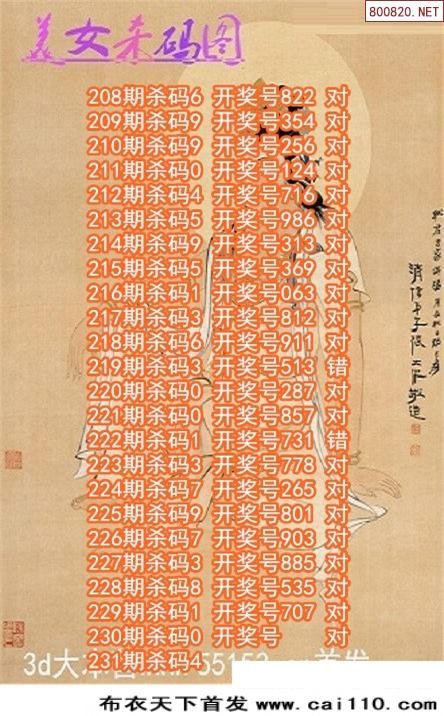 800820.NET
美女杀码图
208期杀码6 开奖号822 对
209期杀码9 开奖号354 对
210期杀码9 开奖号256 对
211期杀码0 开奖号124 对
212期杀码4 开奖号716 对
213期杀码5 开奖号986 对
214期杀码9 开奖号313 对
215期杀码5 开奖号369 对
216期杀码1 开奖号063 对
217期杀码3 开奖号812 对
218期杀码6 开奖号911 对
219期杀码3 开奖号513 错
220期杀码0 开奖号287 对
221期杀码0 开奖号857 对
222期杀码1 开奖号731 错
223期杀码3 开奖号778 对
224期杀码7 开奖号265 对
225期杀码9 开奖号801 对
226期杀码7 开奖号903 对
227期杀码3 开奖号885 对
228期杀码8 开奖号535 对
229期杀码1 开奖号707 对
230期杀码0 开奖号 对
231期杀码4
3d大 首发
布衣天下首发 www.cai110.com